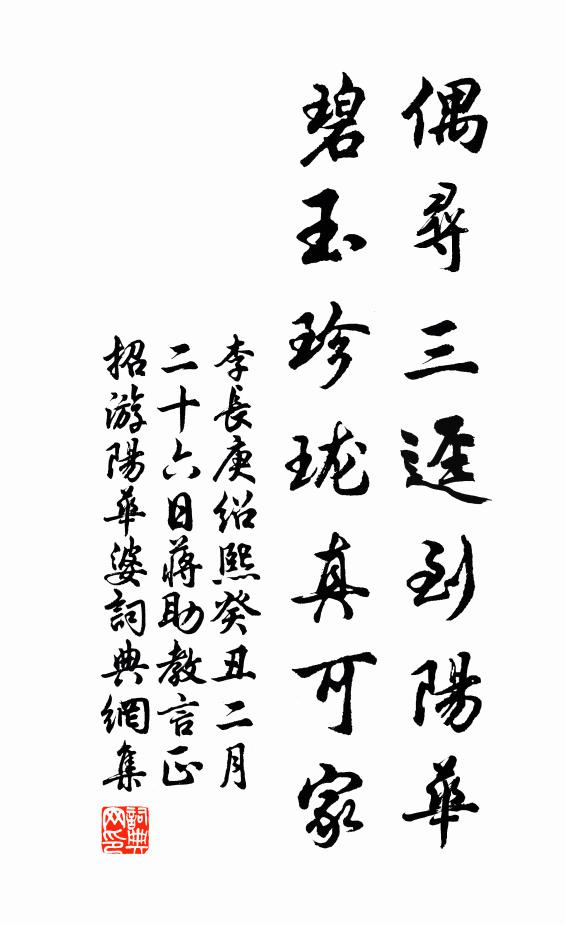 偶尋三逕到陽華
碧玉珍瓏真可家
李長庚紹熙癸丑二月
二十六日蔣助教言正
招游陽華婆詞典網集
詞典
网印